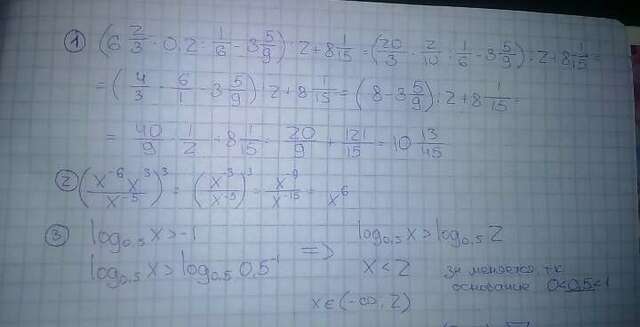 1 (6 2/3 · 0,2 : 1/6 - 3 5/9) : 2 + 8 1/15 = (20/3 · 2/10 : 1/6 - 3 5/9) : 2 + 8 1/15 =
= (4/3 · 6/1 - 3 5/9) : 2 + 8 1/15 = (8 - 3 5/9) : 2 + 8 1/15 =
= 40/9 · 1/2 + 8 1/15 = 20/9 + 121/15 = 10 13/45
2 (x^-6 x^3 / x^-5)^3 = (x^-3 / x^-5)^3 = x^-9 / x^-15 = x^6
3 log0,5 x > -1 => log0,5 x > log0,5 2
log0,5 x > log0,5 0,5^-1 x < 2 зн меняется, т.к
основание 0<0,5<1
x ∈ (-∞, 2)